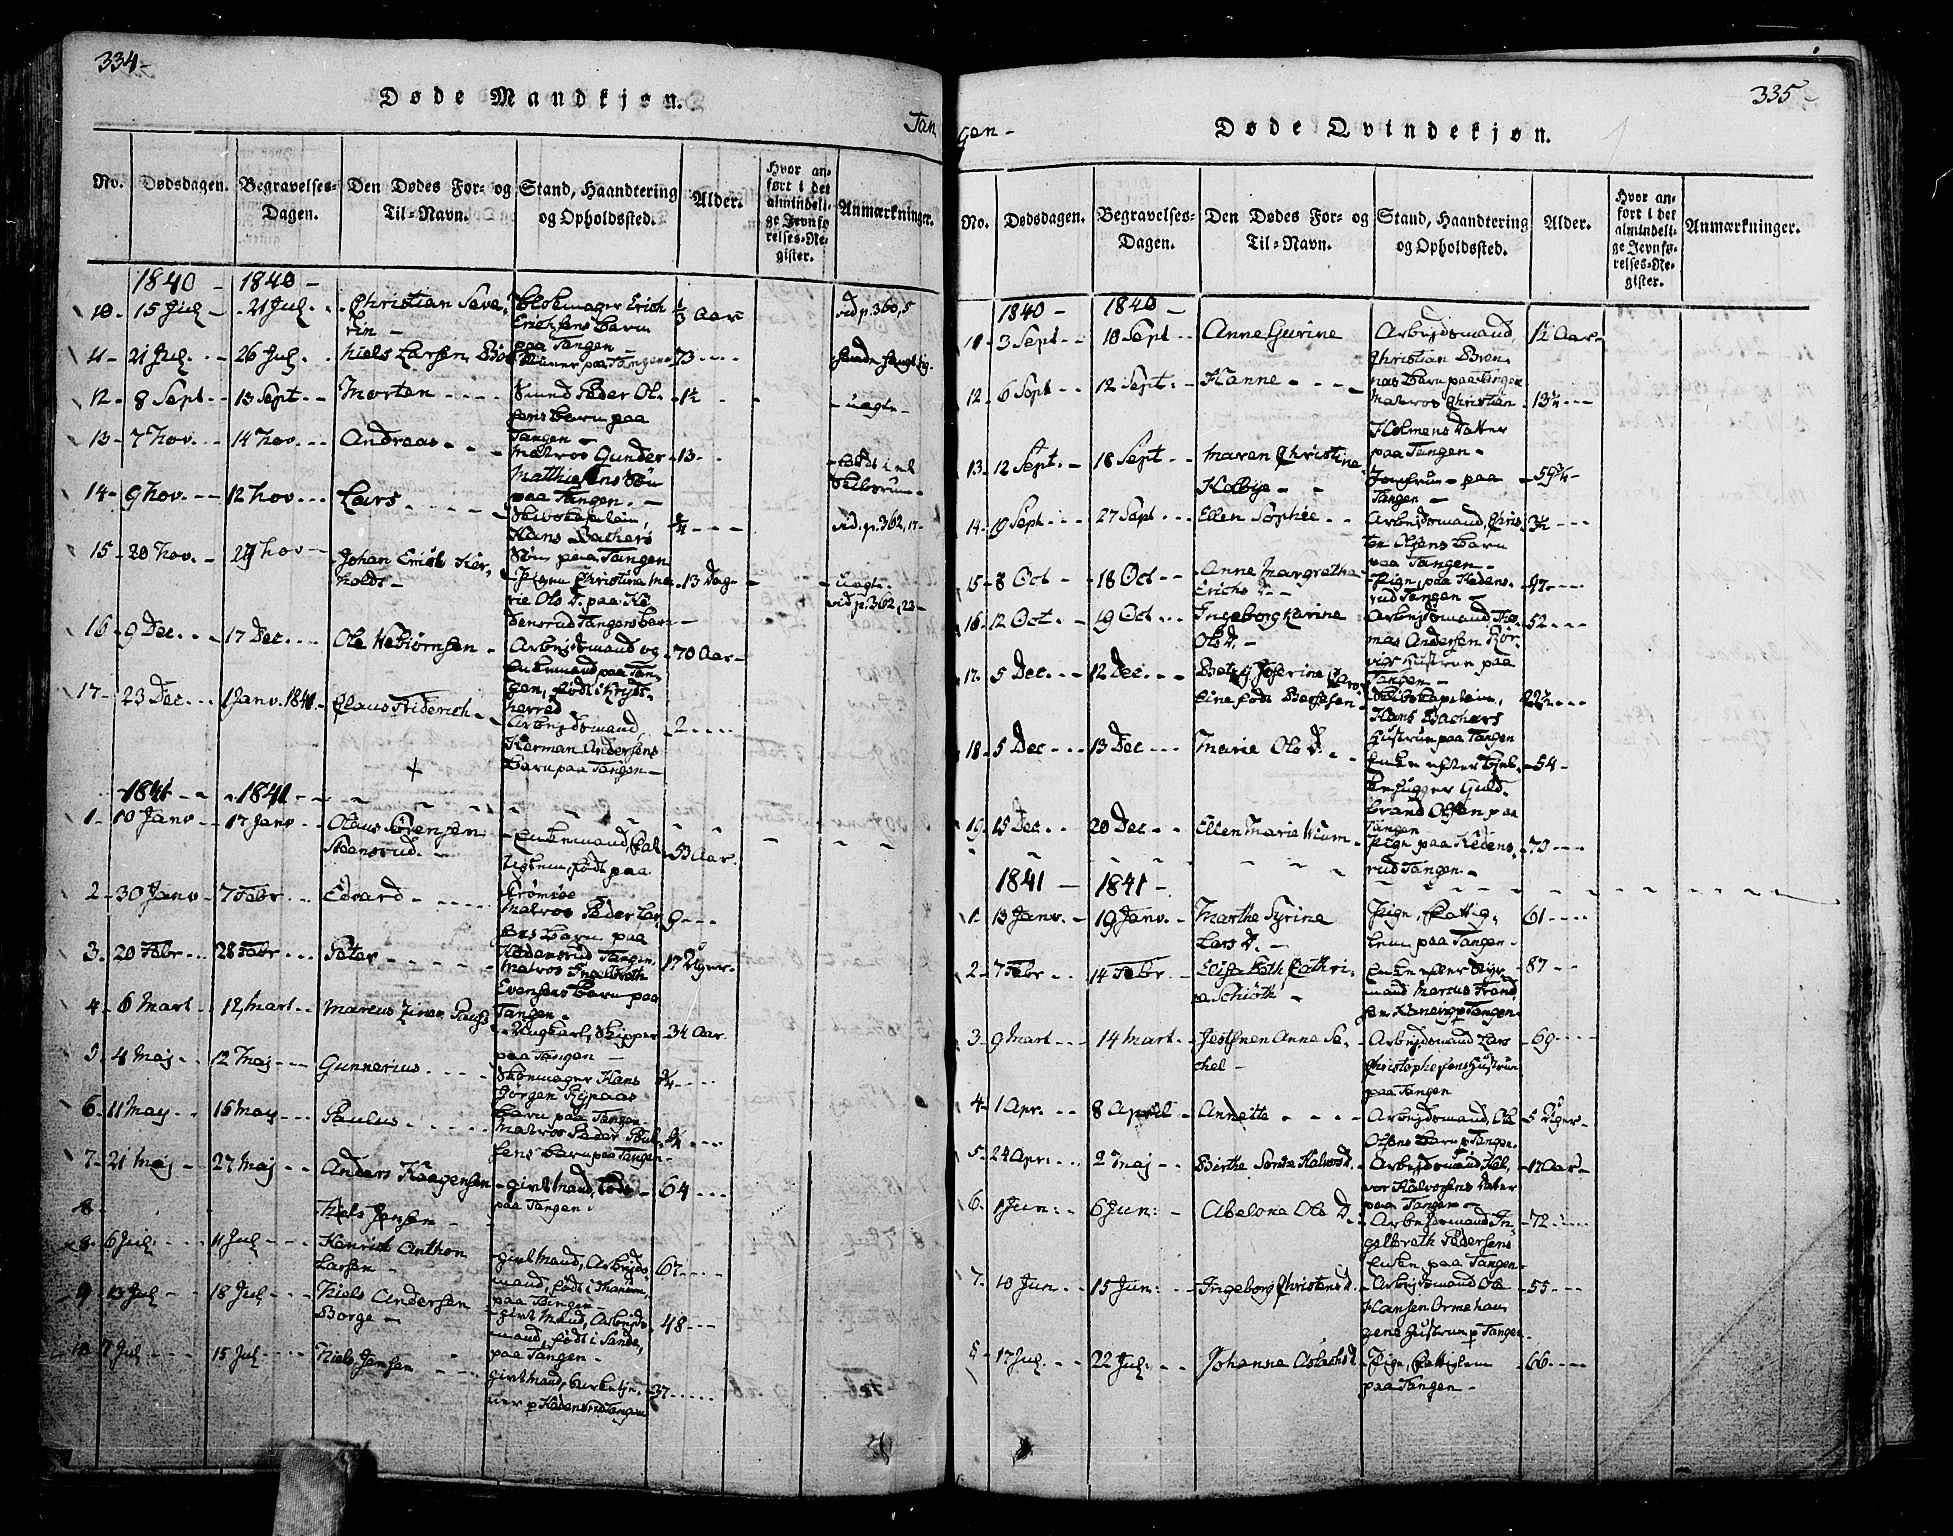 334-
Døde Mandkjøn.
Tan
No.
Dødsdagen.
Begravelses-
Dagen.
Den Dødes For- og
Til-Navn.
Stand, Haandtering
og Opholdssted.
Alder.
Hvor an-
ført i det
almindeli-
ge Jevnfø
relses-Re-
gister.
Anmærkninger.
1840 - 1840 -
10. 15 Jul - 21 Jul. Christian Seve-
rin -
Erichsens barn
paa Tangen -
1/3 Aar
vid p. 360, 5
11 - 21 Jul. - 26 Jul. - Niels Larsen
paa Tangen
73 - - -
12 - 8 Sept - 13 Sept - Morten - - -
Peder Ol-
sens barn paa
Tangen -
1 1/2 -
- uægte -
13 - 7 Nov. - 14 Nov. - Andreas - - -
Matros Gunder
Matthiesens Søn
paa Tangen. -
13 -
14 - 9 Nov. - 12 Nov - Lars - - -
Skibskapitain,
Hans Bachers
Søn paa Tangen
3/4 - - -
vid. p. 362, 17 -
15 - 20 Nov. - 29 Nov - Johan Erich
Pigen Christine Ma-
rie Ols D. paa
densrud Tangens barn
13 Dage
Uægte
vid p. 362, 23 -
16 - 9 Dec. - 17 Dec. - Ole
Arbejdsmand og
Enkemand paa Tan-
gen, født i
70 Aar -
17 - 23 Dec. - 1 Janv. 1841 - Claus Friderich -
Arbejdsmand,
Herman Andersens
barn paa Tangen -
2 - - -
1841 - 1841 -
1 - 10 Janv - 17 Janv - Olaus Sørensen
Steensrud. -
- Enkemand, Fat-
tiglem, født paa
Strømsøe
53 Aar
2 - 30 Janv - 7 Febr - Edvard - - -
Matros Peder Lar-
sens barn paa
Kodensrud Tangen.
9 - - -
3. 20 Febr - 28 Febr - Peter - - -
Matros Ingebreth
Evensens barn paa
Tangen -
17 Uger -
4 - 6 Mart - 12 Mart - Marcus
- Ungkarl, Skipper
paa Tangen -
34 Aar
5 - 4 Maj - 12 Maj - Gunnerius - - -
Skomager Hans
Jørgen
barn paa Tangen -
3/4 - - -
6 - 11 May - 16 May - Paulus - - -
Matros Peder Poul-
sens barn paa Tangen -
7 - 21 Maj - 27 Maj - Anders Haagensen
- givt Mand,
paa Tangen.
64 - - -
8 - Niels Jensen -
8 - 6 Jul. - 11 Jul - Henrich Anthon
Larsen -
givt Mand, Arbejds-
mand, født i
paa Tangen -
67 - - -
9 - 13 Jul - 18 Jul - Niels Andersen
Borge -
givt Mand, Arbejds-
mand, født i Sande,
paa Tangen -
48 - -
10 7 Jul - 15 Jul - Niels Jensen - - -
givt Mand,
p Kodensrud Tangen
37 - - -
335
gen -
Døde Qvindekjøn.
No.
Dødsdagen.
Begravelses-
Dagen.
Den Dødes For- og
Til-Navn.
Stand, Haandtering
og Opholdssted.
Alder.
Hvor an-
ført i det
almindeli-
ge Jevnfø-
relses-Re-
gister.
Anmærkninger.
1840 - 1840 -
11 - 3 Sept - 10 Sept - Anne Gurine
Arbejdsmand,
Christian
barn paa Tangen
1 1/2 Aar -
12 - 6 Sept - 12 Sept: - Hanne - - -
Matros Christian
Holmens Datter
paa Tangen -
13 1/2 -
13 - 12 Sept. - 18 Sept - Maren Christine
Holbye - -
Jomfrue - paa
Tangen -
14 - 19 Sept. - 27 Sept - Ellen Sophie - -
Arbejdsmand, Chris-
ten Olsens barn
paa Tangen -
3 1/2 - - -
15 - 8 Oct - 18 Oct - Anne Margrethe
Erichs D. -
Pige, paa Kodens-
rud Tangen -
16 - 12 Oct. - 19 Oct. - Ingeborg Karine
Ols D. -
Arbejdsmand Tho-
mas Andersen
Hustrue paa
Tangen -
52 - - -
17. 5 Dec. - 12 Dec. - Betzy Joserine Caro-
line født
Skibskapitain,
Hans Bachers
Hustrue paa Tangen
18 - 5 Dec - 13 Dec - Marie Ols D. -
Enke efter
Guld-
brand Olsen paa
Tangen
54 -
19. 15 Dec - 20 Dec - Ellen Marie Wium -
Pige paa Kodens-
rud Tangen. -
73 - - -
1841 - 1841 -
1 - 13 Janv. - 19 Janv. - Marthe Syrine
Lars D. -
Pige, Fattig-
lem paa Tangen -
61 - - -
2 - 7 Febr - 14 Febr - Elisabeth Cathri-
na Schiøth -
Enke efter
mand Marcus
p Tangen -
87 - -
3 - 9 Mart - 14 Mart. - Anne
Arbejdsmand Lars
Christophersens Hustrue
paa Tangen
69 - - -
4 - 1 Apr. - 8 April - Annette - - -
Arbejdsmand, Ole
Olsens barn p Tangen.
5 Uger -
5. 24 Apr: - 2 Maj - Birthe Halvors D.
Arbejdsmand Hal-
vor Halvorsens Datter
paa Tangen -
17 Aar -
6. 1 Jun: - 6 Jun: - Abelone Ols D. -
Arbejdsmand In-
gelbreth Pedersens
Enke paa Tangen -
72 - - -
7 - 10 Jun - 15 Jun: - Ingeborg Christens D.
Arbejdsmand Ole
Hansen Ormehau-
gens Hustrue p Tangen -
55 - - -
8 - 17 Jul. - 22 Jul. - Johanne Aslachs D.
Pige, Fattiglem
paa Tangen -
66 - - -